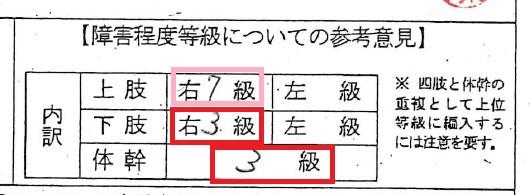 【障害程度等級についての参考意見】
内訳
上肢 右7級 左 級
下肢 右3級 左 級
体幹 3 級
※ 四肢と体幹の
重複として上位
等級に編入する
には注意を要す。